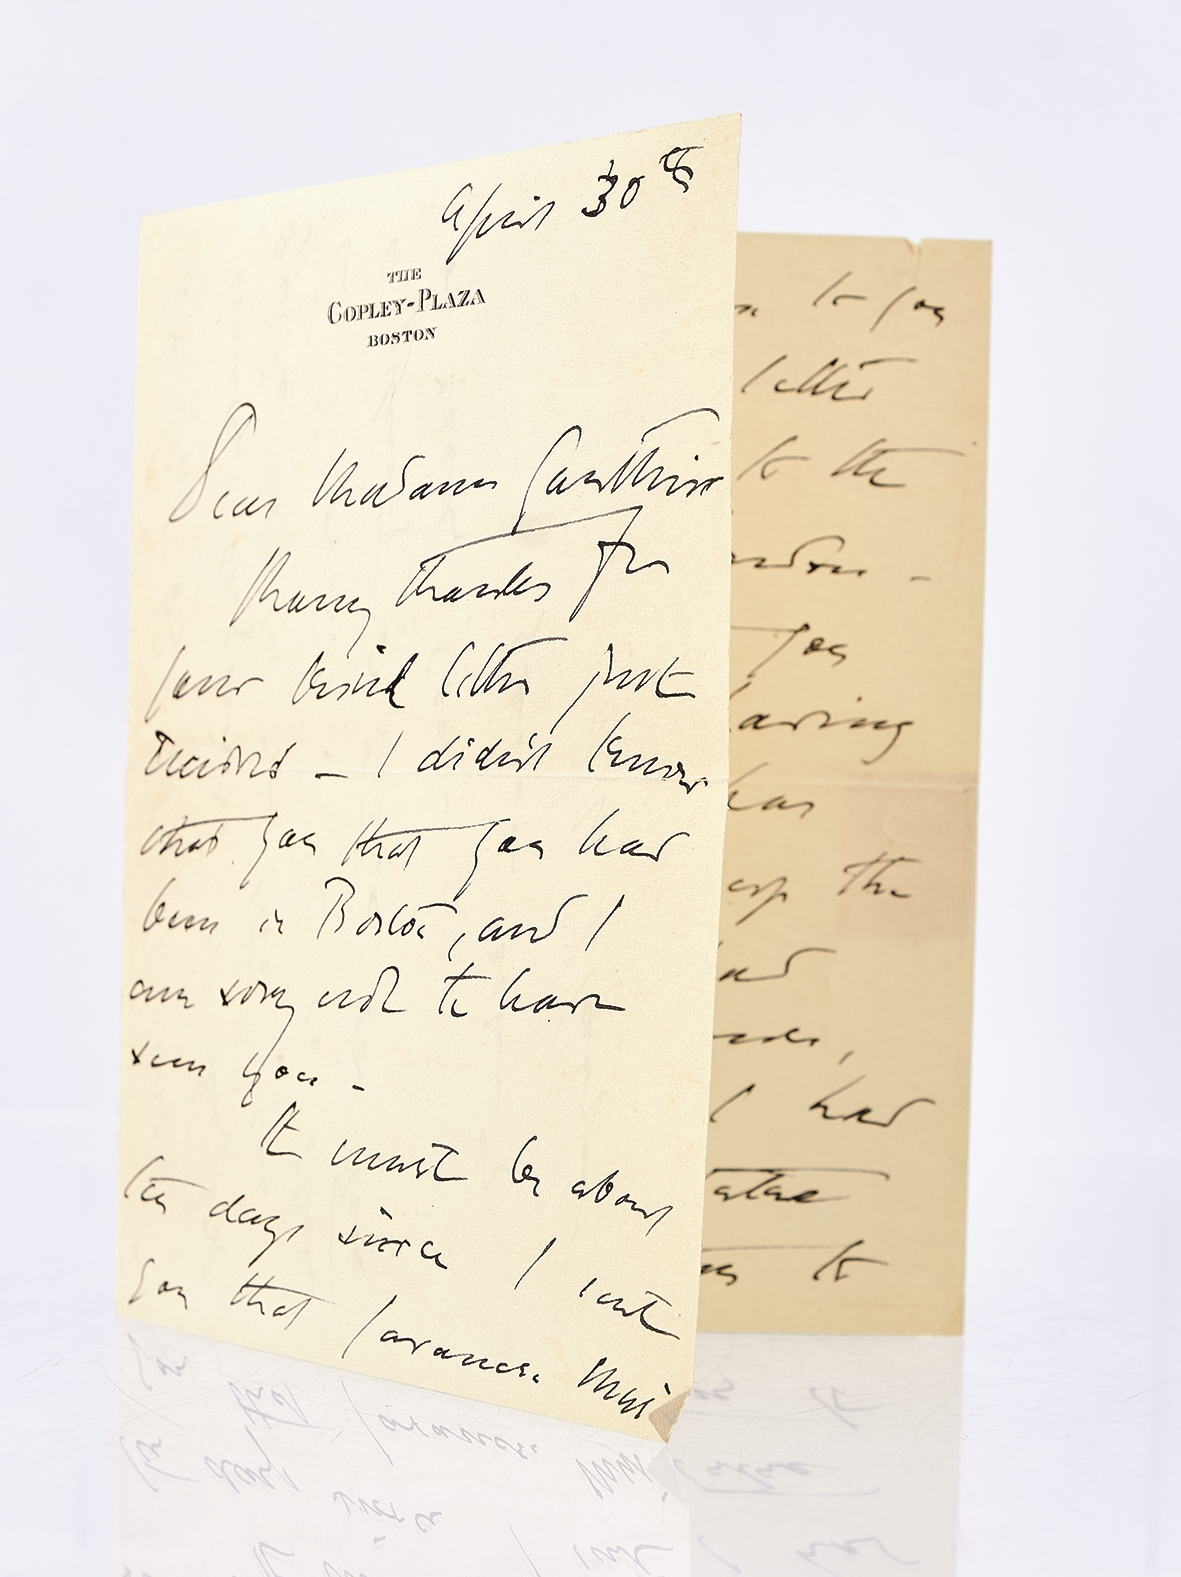 April 30th
THE
COPLEY-PLAZA
BOSTON
Dear Madame Gauthier
Many thanks for
your kind letter just
received – I didn't know
that you that you had
been in Boston, and I
am sorry not to have
seen you –
It must be about
ten days since I sent
you that Javanese Music
to you
letter
to the
you
having
has
up the
had
I had
to